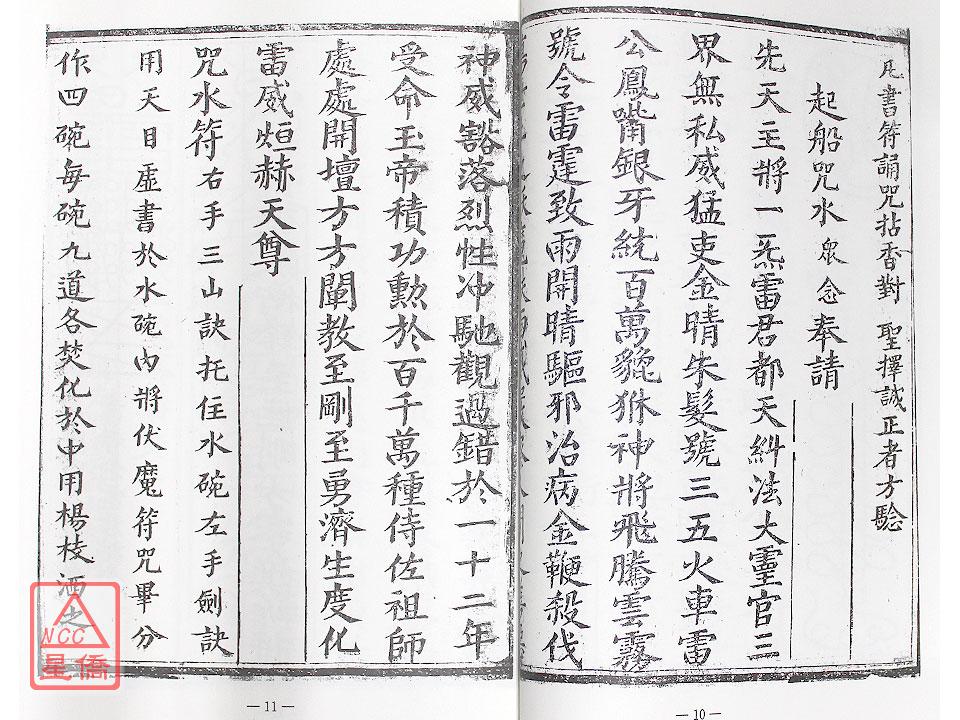 凡書符誦咒拈香對　聖擇誠正者方驗
起船咒水眾念奉請
先天主將一炁雷君都天糾法大靈官三
界無私威猛吏金睛朱髮號三五火車雷
公鳳嘴銀牙統百萬貔貅神將飛騰雲霧
號令雷霆致雨開晴驅邪治病金鞭殺伐
— 10 —
神威豁落烈性冲馳觀過錯於一十二年
受命玉帝積功勳於百千萬種侍佐祖師
處處開壇方方闡教至剛至勇濟生度化
雷威烜赫天尊
咒水符右手三山訣托住水碗左手劍訣
用天目虛書於水碗內將伏魔符咒畢分
作四碗每碗九道各焚化於中用楊枝洒之
— 11 —
NCC
星僑